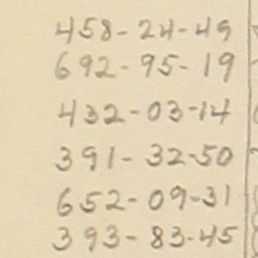 458-24-49
692-95-19
432-03-14
391-32-50
652-09-31
393-83-45